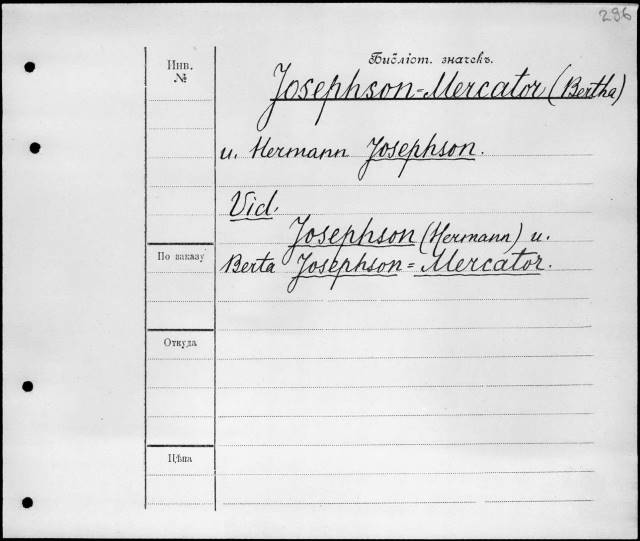 296
Инв.
№
Библіот. значекъ.
Josephson=Mercator (Bertha)
u. Hermann Josephson.
Vid.
Josephson (Hermann) u.
По заказу
Berta Josephson=Mercator.
Откуда
Цѣна